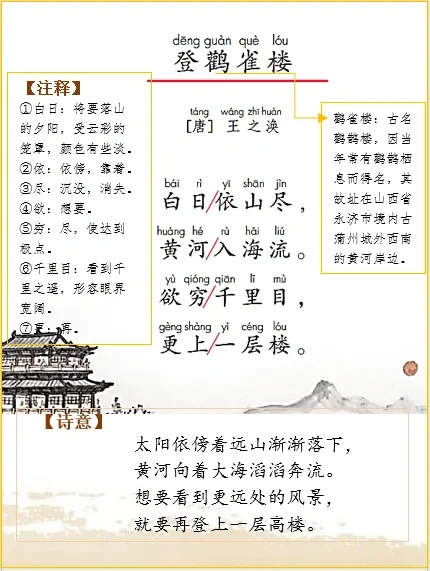 dēng guàn què lóu
登鹳雀楼
【注释】
①白日：将要落山
的夕阳，受云彩的
笼罩，颜色有些淡。
②依：依傍，靠着。
③尽：沉没，消失。
④欲：想要。
⑤穷：尽，使达到
极点。
⑥千里目：看到千
里之遥，形容眼界
宽阔。
⑦更：再。
táng wáng zhī huàn
[唐] 王之涣
鹳雀楼：古名
鹳鹊楼，因当
年常有鹳鹊栖
息而得名，其
故址在山西省
永济市境内古
蒲州城外西南
的黄河岸边。
bái rì yī shān jìn
白日/依山尽，
huáng hé rù hǎi liú
黄河/入海流。
yù qióng qiān lǐ mù
欲穷/千里目，
gèng shàng yì céng lóu
更上/一层楼。
【诗意】
太阳依傍着远山渐渐落下，
黄河向着大海滔滔奔流。
想要看到更远处的风景，
就要再登上一层高楼。